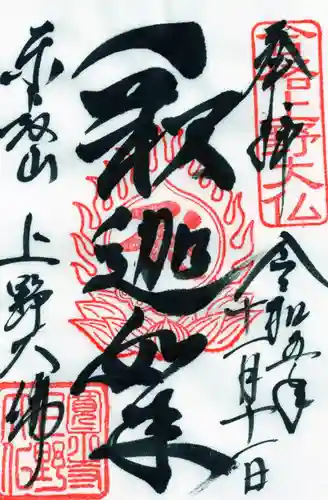 奉拝
合格上野大仏
令和五年
十一月十一日
釈迦如来
東叡山
上野大佛